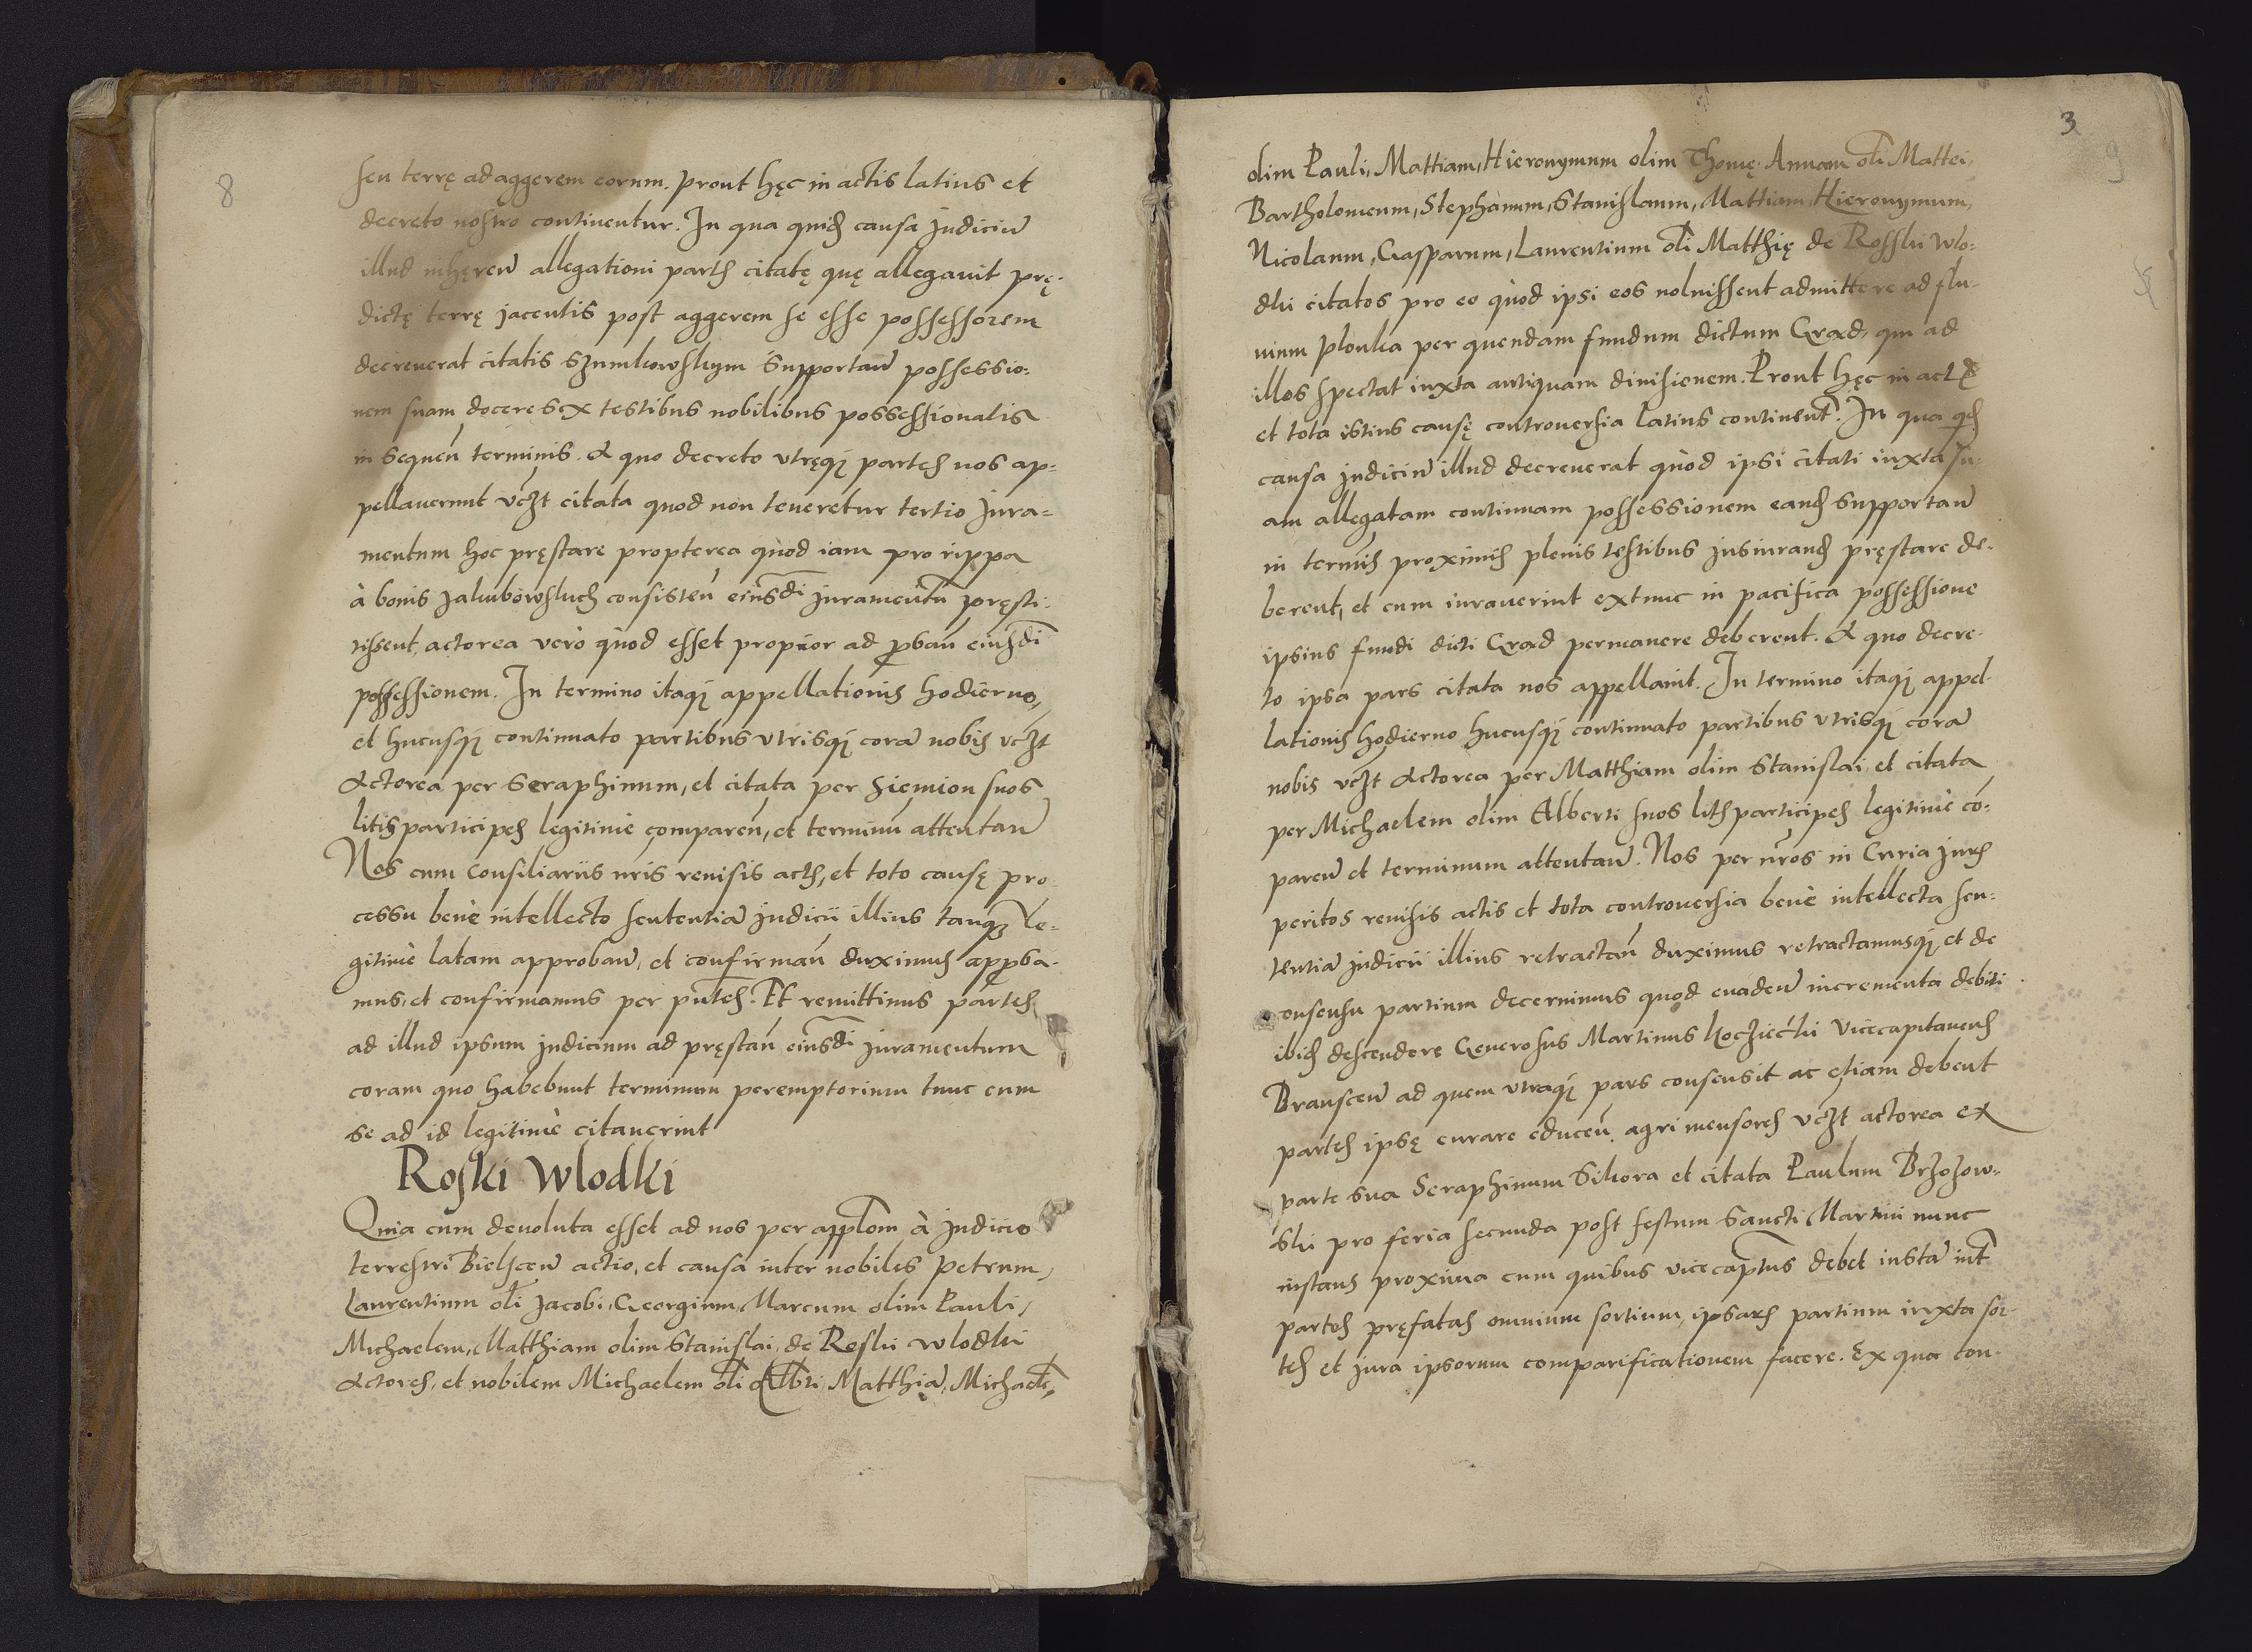 8
seu terrę ad aggerem eorum. prout hęc in actis latius et
decreto nostro continentur. In qua quid causa Judiciũ
illud inhęreñ allegationi partis citatę quę allegauit prę-
dictę terrę jacentis post aggerem se esse possessorem
decreuerat citatis Szumkowskym Supportañ possessio:
nem suam docere sex testibus nobilibus possessionatis
in sequeñ terminis. A quo decreto vtręq; partes nos ap-
pellauerunt vczt citata quod non teneretur tertio Jura-
mentum hoc pręstare propterea quòd iam pro rippa
à bonis Jakubowskich consisteñ eiusdi Juramentũ pręsti-
tissent, actorea verò quòd esset propior ad probañ eiusdi
possessionem. In termino itaq; appellationis hodierno,
et hucusq; continuato partibus vtrisq; corã nobis vczt
Actorea per Seraphinum, et citata per Siemion suos
litis participes legitimè compareñ, et terminũ attentañ
Nos cum Consiliariis nris reuisis actis, et toto causę pro-
cessu benè intellecto sententiã Judicii illius tanq̃ le-
gitimè latam approbañ, et confirmañ duximus approba-
mus, et confirmamus per pñtes. Et remittimus partes
ad illud ipsum Judicium ad pręstañ eiusdi Juramentum
coram quo habebunt terminum peremptorium tunc cum
se ad id legitimè citauerint
Roski Wlodki
Quia cum deuoluta esset ad nos per applom à Judicio
terrestri Bielsceñ actio, et causa inter nobiles Petrum,
Laurentium oli Jacobi, Georgium, Marcum olim Pauli,
Michaelem, Matthiam olim Stanislai, de Roski Wlodki
Actores, et nobilem Michaelem oli Albti Matthiã, Michaele,
3
9
olim Pauli, Mattiam, Hieronymum olim Thomę. Annam oli Mattei,
Bartholomeum, Stephanum, Stanislaum, Mattiam, Hieronymum,
Nicolaum, Gasparum, Laurentium oli Matthię de Rosski Wlo-
dki citatos pro eo quòd ipsi eos noluissent admittere ad flu-
uium Plonka per quendam fundum dictum Grąd, qui ad
illos spectat iuxta antiquam diuisionem. Prout hęc in actis
et tota istius causę controuersia latius continent. In qua qd
causa Judiciũ illud decreuerat quòd ipsi citati iuxta su-
am allegatam continuam possessionem eand supportañ
in termis proximis plenis testibus Jusiurand pręstare de-
berent, et cum iurauerint extunc in pacifica possessione
ipsius fundi dicti Grąd permanere deberent. A quo decre-
to ipsa pars citata nos appellauit. In termino itaq; appel-
lationis hodierno hucusq; continuato partibus vtrisq; corã
nobis vczt Actorea per Matthiam olim Stanislai, et citata
per Michaelem olim Alberti suos litis participes legitimè cõ-
pareñ et terminum attentañ. Nos per nros in Curia Juris
peritos reuisis actis et tota controuersia benè intellecta sen-
tentiã Judicii illius retractañ duximus retractamusq; et de
consensu partium decernimus quod euadeñ incrementa debiti
ibid descendere Generosus Martinus Koczieczki Vicecapitaneus
Bransceñ ad quem vtraq; pars consensit ac etiam debent
partes ipsę curare educeñ agri mensores vczt actorea ex
parte sua Seraphinum Sikora et citata Paulum Brzozow-
ski pro feria secunda post festum Sancti Martini nunc
instans proxima cum quibus vicecaptus debet instã int
partes pręfatas omnium sortium, ipsarum partium iuxta sor-
tes et jura ipsorum comparificationem facere. Ex qua con-